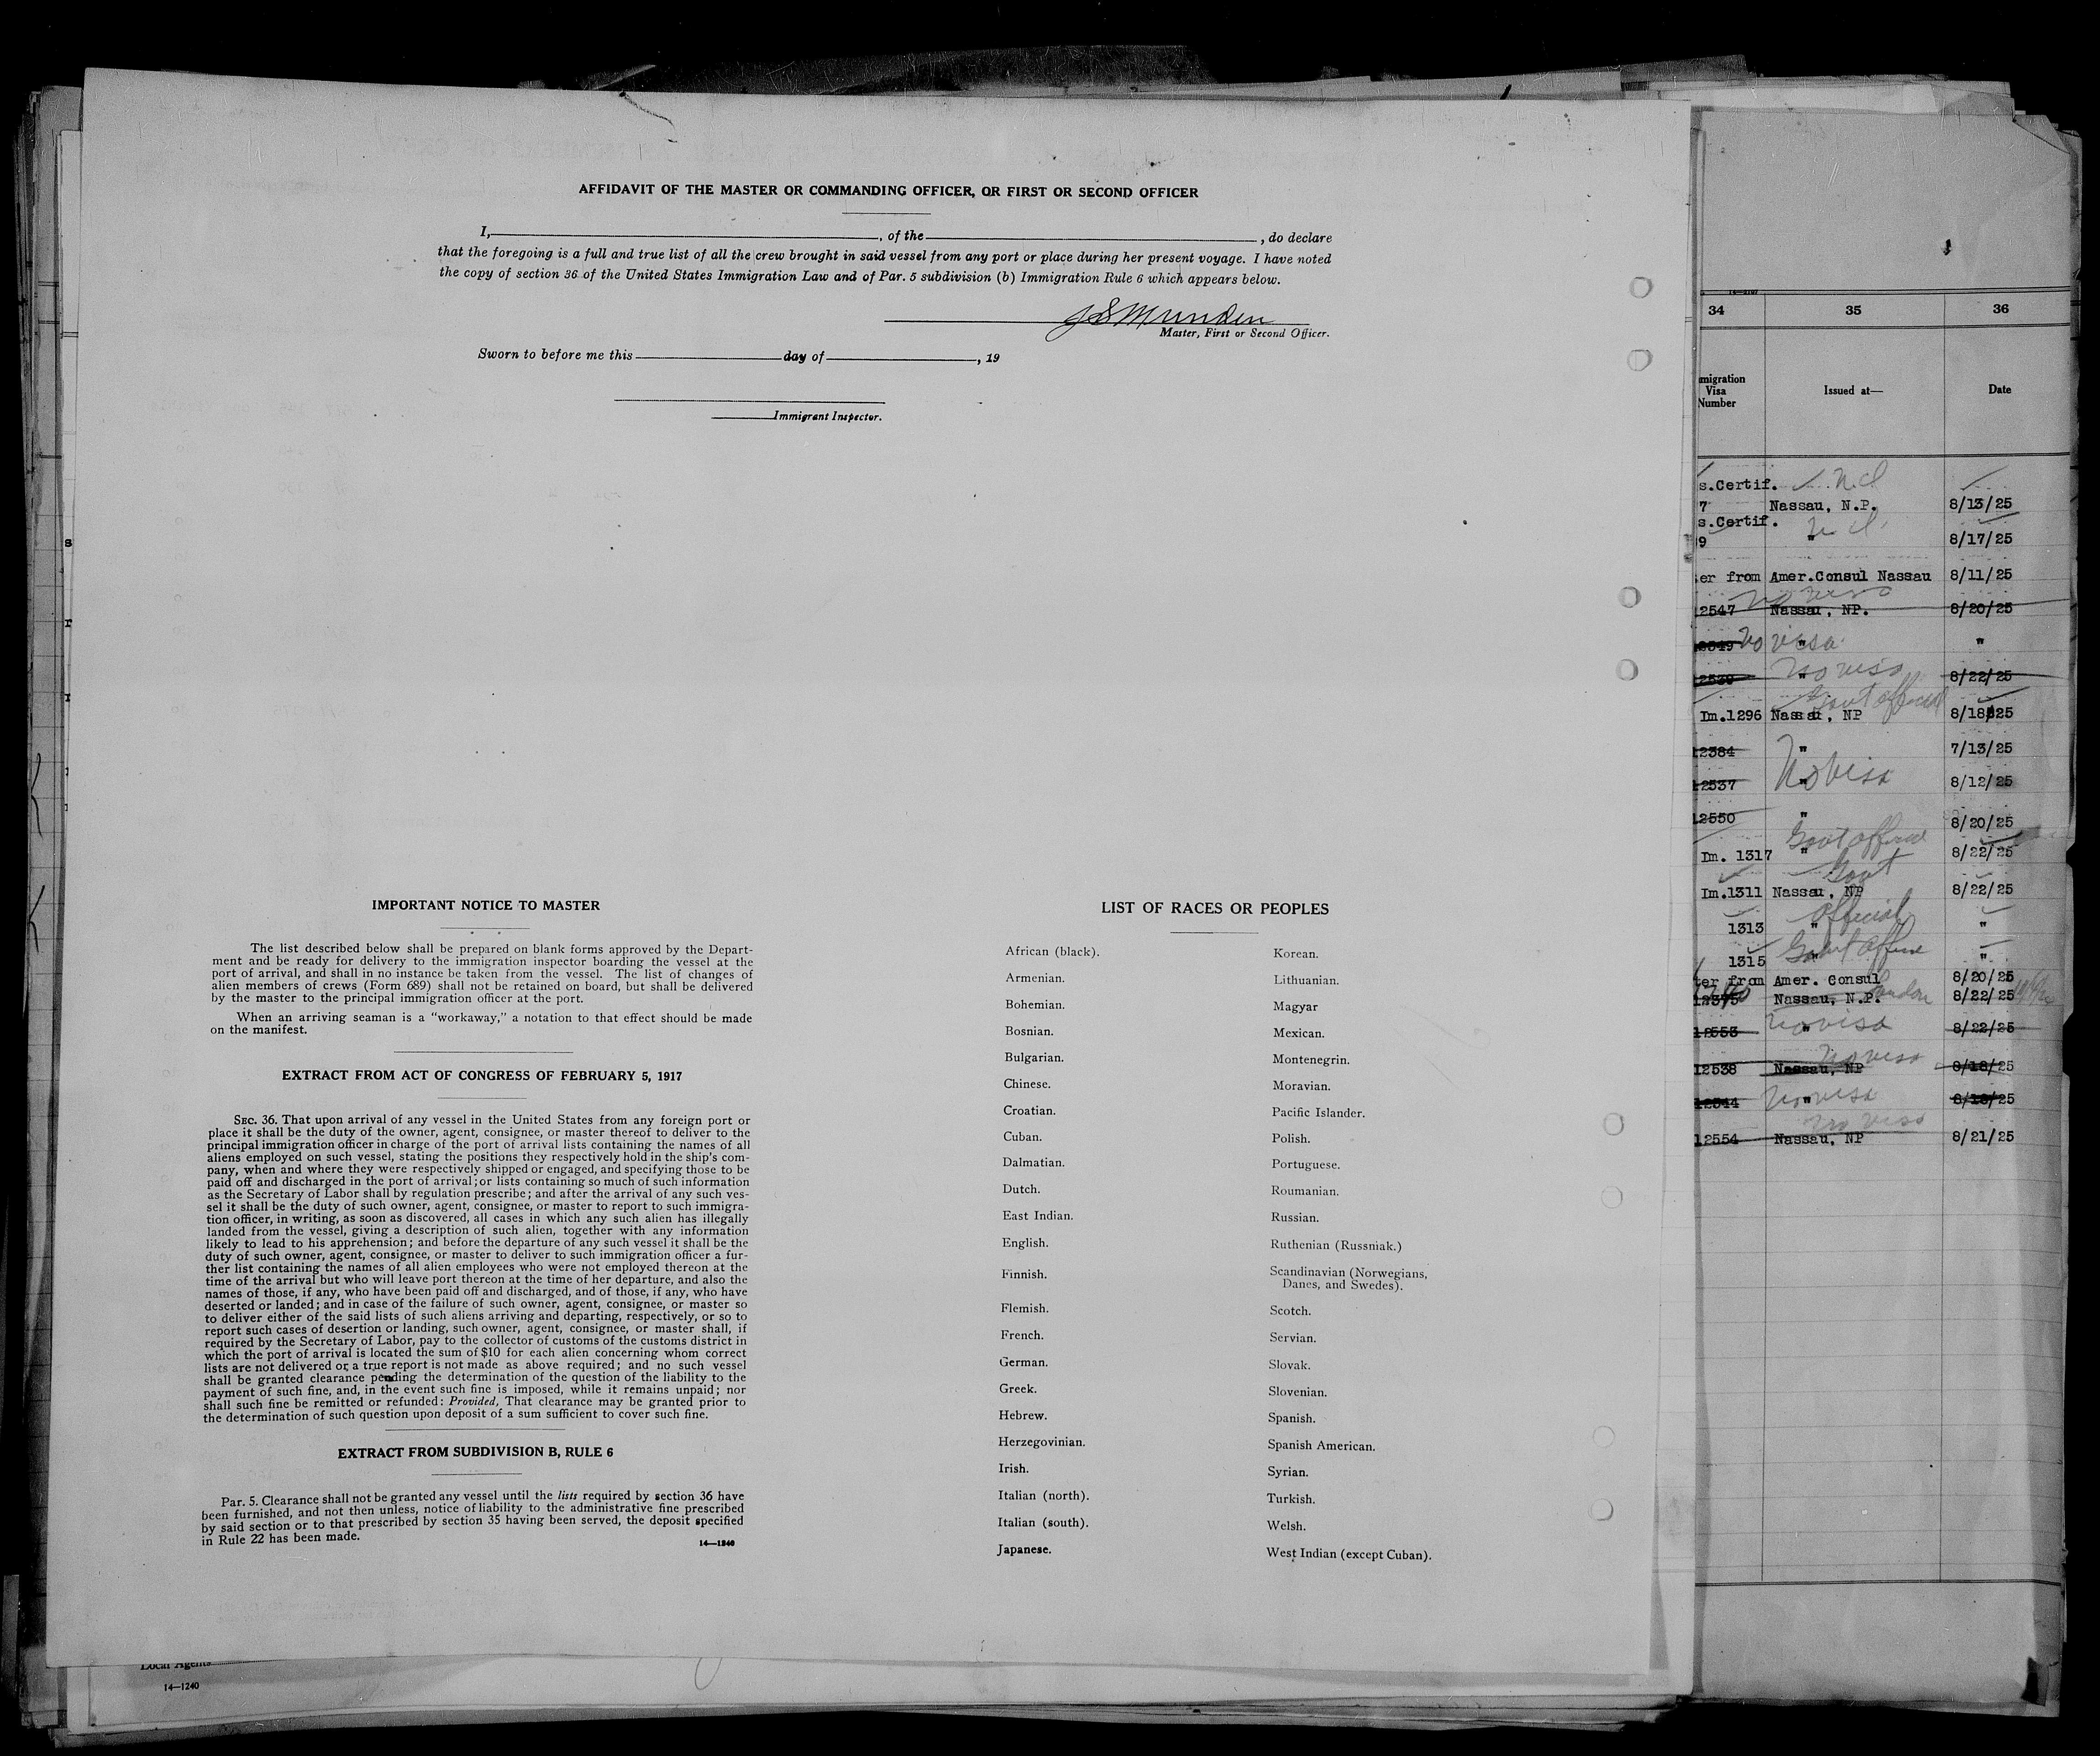 AFFIDAVIT OF THE MASTER OR COMMANDING OFFICER, OR FIRST OR SECOND OFFICER
I, , of the , do declare
that the foregoing is a full and true list of all the crew brought in said vessel from any port or place during her present voyage. I have noted
the copy of section 36 of the United States Immigration Law and of Par. 5 subdivision (b) Immigration Rule 6 which appears below.
J S Munden
Master, First or Second Officer.
Sworn to before me this day of , 19
Immigrant Inspector.
IMPORTANT NOTICE TO MASTER
The list described below shall be prepared on blank forms approved by the Depart-
ment and be ready for delivery to the immigration inspector boarding the vessel at the
port of arrival, and shall in no instance be taken from the vessel. The list of changes of
alien members of crews (Form 689) shall not be retained on board, but shall be delivered
by the master to the principal immigration officer at the port.
When an arriving seaman is a "workaway," a notation to that effect should be made
on the manifest.
EXTRACT FROM ACT OF CONGRESS OF FEBRUARY 5, 1917
SEC. 36. That upon arrival of any vessel in the United States from any foreign port or
place it shall be the duty of the owner, agent, consignee, or master thereof to deliver to the
principal immigration officer in charge of the port of arrival lists containing the names of all
aliens employed on such vessel, stating the positions they respectively hold in the ship's com-
pany, when and where they were respectively shipped or engaged, and specifying those to be
paid off and discharged in the port of arrival; or lists containing so much of such information
as the Secretary of Labor shall by regulation prescribe; and after the arrival of any such ves-
sel it shall be the duty of such owner, agent, consignee, or master to report to such immigra-
tion officer, in writing, as soon as discovered, all cases in which any such alien has illegally
landed from the vessel, giving a description of such alien, together with any information
likely to lead to his apprehension; and before the departure of any such vessel it shall be the
duty of such owner, agent, consignee, or master to deliver to such immigration officer a fur-
ther list containing the names of all alien employees who were not employed thereon at the
time of the arrival but who will leave port thereon at the time of her departure, and also the
names of those, if any, who have been paid off and discharged, and of those, if any, who have
deserted or landed; and in case of the failure of such owner, agent, consignee, or master so
to deliver either of the said lists of such aliens arriving and departing, respectively, or so to
report such cases of desertion or landing, such owner, agent, consignee, or master shall, if
required by the Secretary of Labor, pay to the collector of customs of the customs district in
which the port of arrival is located the sum of $10 for each alien concerning whom correct
lists are not delivered or a true report is not made as above required; and no such vessel
shall be granted clearance pending the determination of the question of the liability to the
payment of such fine, and, in the event such fine is imposed, while it remains unpaid; nor
shall such fine be remitted or refunded: Provided, That clearance may be granted prior to
the determination of such question upon deposit of a sum sufficient to cover such fine.
EXTRACT FROM SUBDIVISION B, RULE 6
Par. 5. Clearance shall not be granted any vessel until the lists required by section 36 have
been furnished, and not then unless, notice of liability to the administrative fine prescribed
by said section or to that prescribed by section 35 having been served, the deposit specified
in Rule 22 has been made.
14—1240
LIST OF RACES OR PEOPLES
African (black).
Armenian.
Bohemian.
Bosnian.
Bulgarian.
Chinese.
Croatian.
Cuban.
Dalmatian.
Dutch.
East Indian.
English.
Finnish.
Flemish.
French.
German.
Greek.
Hebrew.
Herzegovinian.
Irish.
Italian (north).
Italian (south).
Japanese.
Korean.
Lithuanian.
Magyar
Mexican.
Montenegrin.
Moravian.
Pacific Islander.
Polish.
Portuguese.
Roumanian.
Russian.
Ruthenian (Russniak.)
Scandinavian (Norwegians,
Danes, and Swedes).
Scotch.
Servian.
Slovak.
Slovenian.
Spanish.
Spanish American.
Syrian.
Turkish.
Welsh.
West Indian (except Cuban).
Local Agents
14—1240
34 35 36
migration
Visa
Number
Issued at—
Date
s.Certif.
7 Nassau, N.P. 8/13/25
s.Certif.
9 " 8/17/25
er from Amer.Consul Nassau 8/11/25
no visa
2547 Nassau, NP. 8/20/25
2549 no visa " "
2539 " no visa 8/22/25
Govt official
Im.1296 Nassau, NP 8/18/25
12384 " 7/13/25
12537 " No visa 8/12/25
12550 " 8/20/25
Govt official
Im. 1317 " 8/22/25
Govt
Im.1311 Nassau, NP 8/22/25
official
1313 " "
Govt
1315 " "
ter from Amer. Consul 8/20/25
12375 Nassau, N.P. 8/22/25
12553 " no visa 8/22/25
no visa
12538 Nassau, NP 8/18/25
12544 " no visa 8/18/25
no visa
12554 Nassau, NP 8/21/25